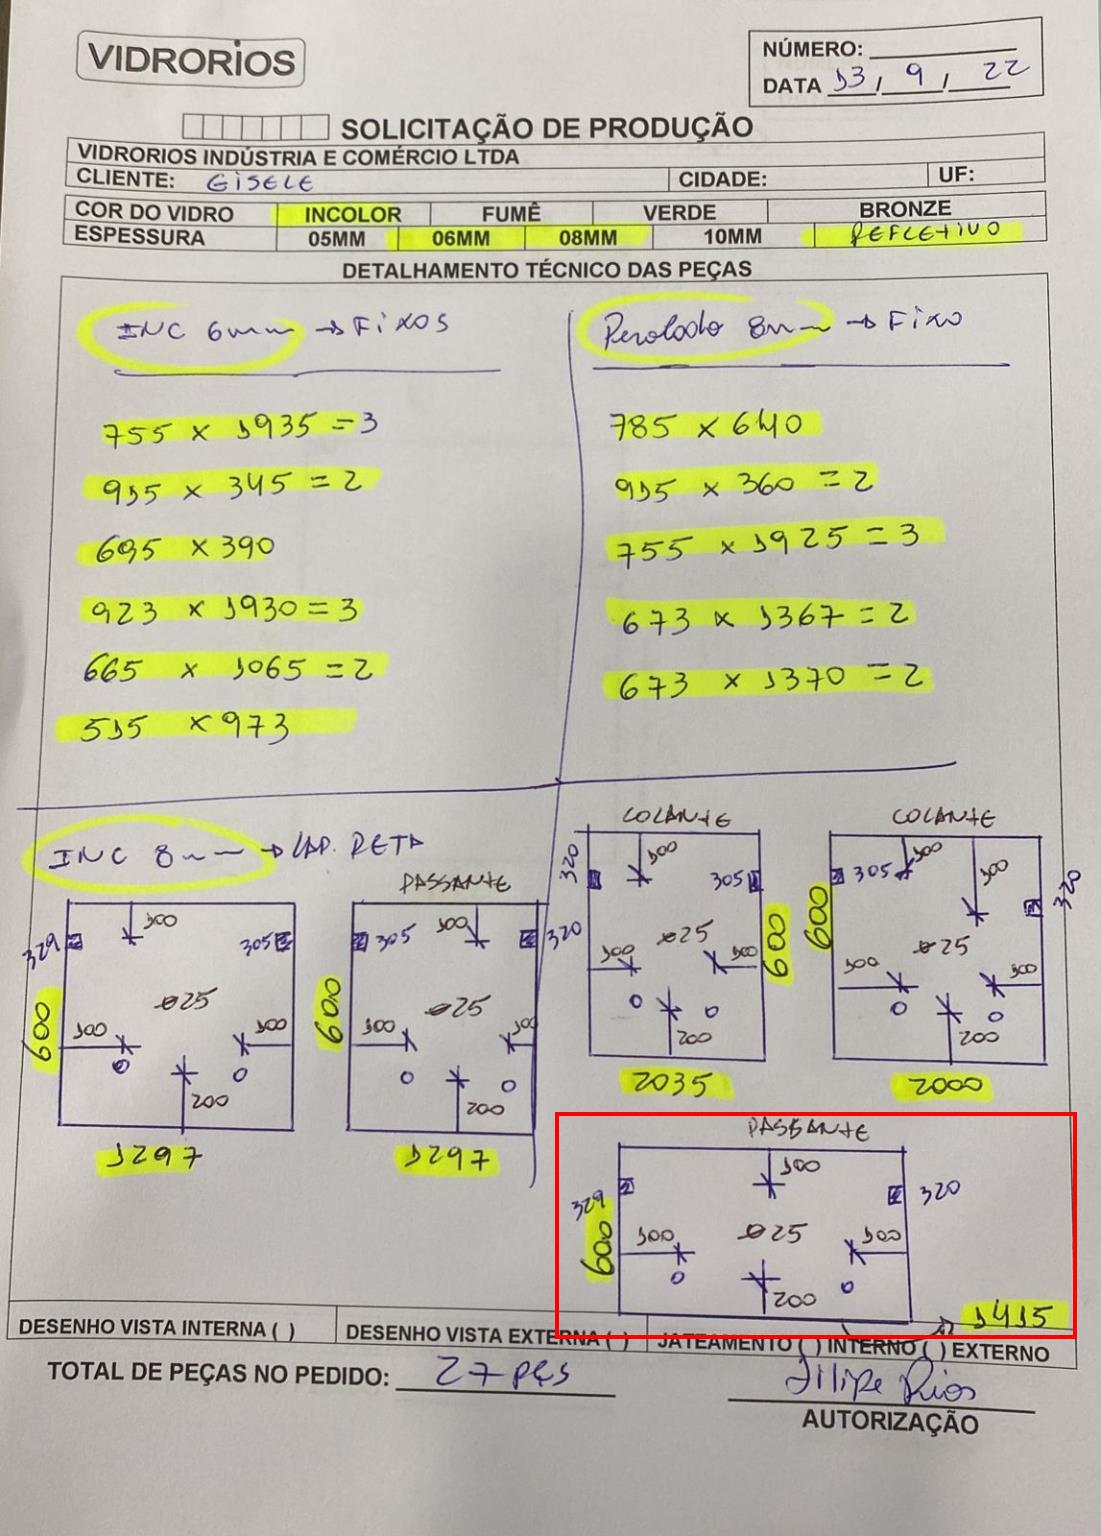 VIDRORIOS
NÚMERO:
DATA 13/9/22
SOLICITAÇÃO DE PRODUÇÃO
VIDRORIOS INDÚSTRIA E COMÉRCIO LTDA
CLIENTE: GISELE CIDADE: UF:
COR DO VIDRO INCOLOR FUMÊ VERDE BRONZE
ESPESSURA 05MM 06MM 08MM 10MM REFLETIVO
DETALHAMENTO TÉCNICO DAS PEÇAS
INC 6mm → FIXOS
755 x 1935 = 3
915 x 345 = 2
695 x 390
923 x 1930 = 3
665 x 1065 = 2
515 x 973
Perolado 8mm → FIXO
785 x 640
915 x 360 = 2
755 x 1925 = 3
673 x 1367 = 2
673 x 1370 = 2
INC 8mm → LAP. RETA
329 100 305
600 ø25
100 100
200
1297
PASSANTE
305 100 320
600 ø25
100 100
200
1297
COLANTE
320 100 305
ø25 600
100 100
200
2035
COLANTE
305 100 100 320
600 ø25
100 100
200
2000
PASSANTE
329 100 320
600 100 ø25 100
200
1415
DESENHO VISTA INTERNA ( ) DESENHO VISTA EXTERNA ( ) JATEAMENTO ( ) INTERNO ( ) EXTERNO
TOTAL DE PEÇAS NO PEDIDO: 27 pçs
Filipe Rios
AUTORIZAÇÃO